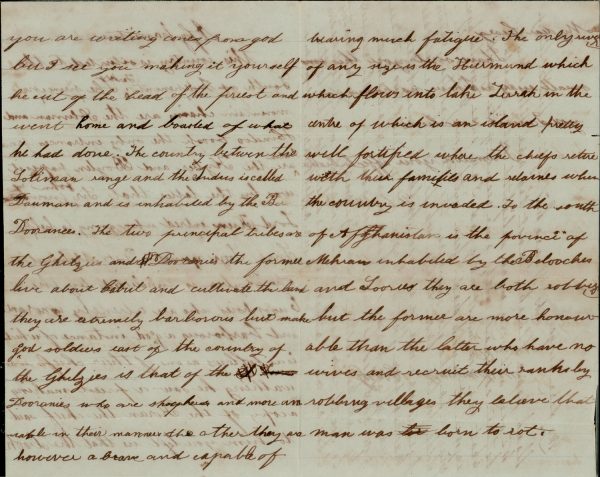 you are writing
but I see you making it yourself
he cut of the head of the priest and
went home and boasted of what
he had done. The country between the
range and the Indies is called
Dauman and is inhabited by the Bu
Dooranee. The two principal tribes are
the Ghilzies and Dooranis the former
live about Cabul and cultivate the land
they are extremely barbarous but make
god soldiers east of the country of
the Ghilzies is that of the
Dooranies who are shepherds and more am
iable in their manners the other they are
however a brave and capable of
bearing much fatigue. The only river
of any size is the Hurmund which
which flows into lake Zurrah in the
centre of which is an island pretty
will fortified where the chiefs retire
with their families and retaines when
the country is invaded. To the south
of Affghanistan is the province of
Mehran inhabeted by the Belooches
and Loories they are both robbers
but the former are more honour
able than the latter who have no
wives and recruit their ranks by
robbing villages they believe that
man was born to rot.